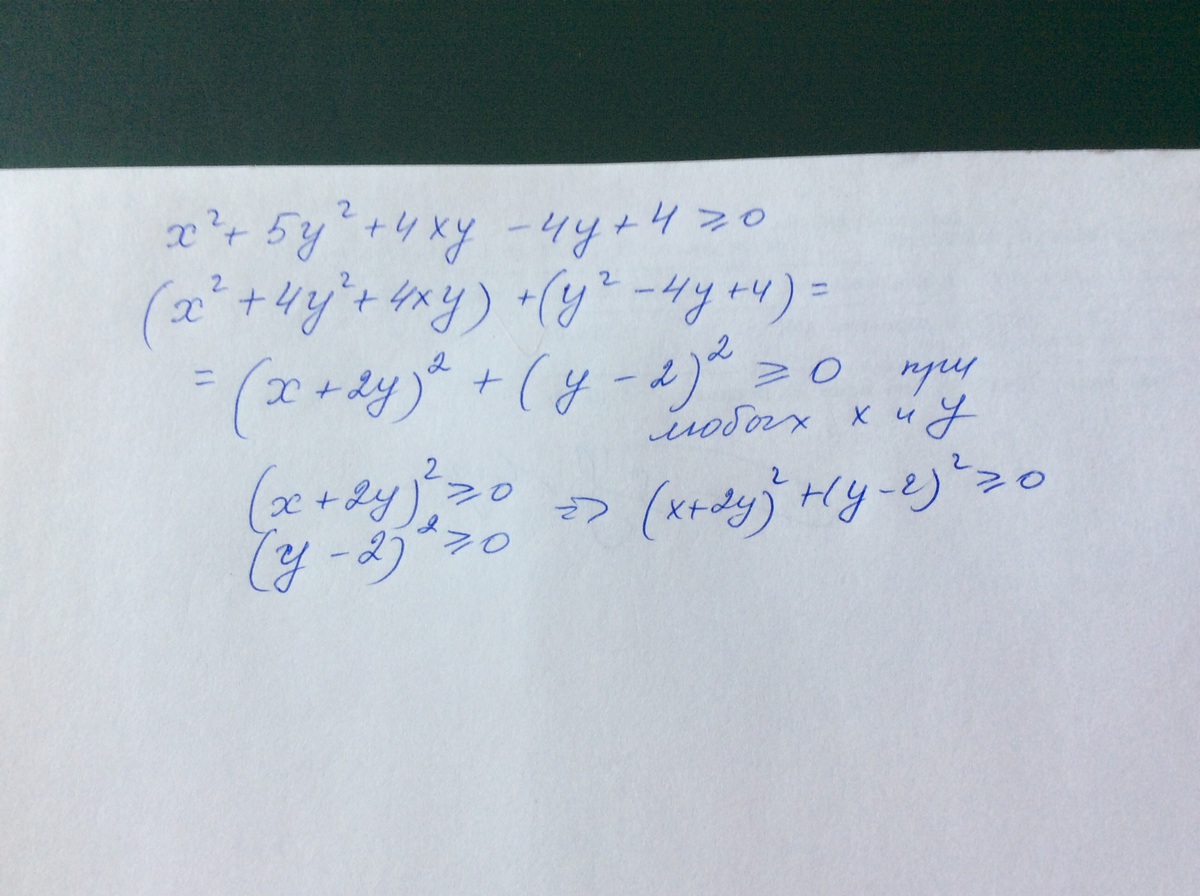 x² + 5y² + 4xy - 4y + 4 ⩾ 0
(x² + 4y² + 4xy) + (y² - 4y + 4) =
= (x + 2y)² + (y - 2)² ⩾ 0 при
любых x и y
(x + 2y)² ⩾ 0 => (x + 2y)² + (y - 2)² ⩾ 0
(y - 2)² ⩾ 0